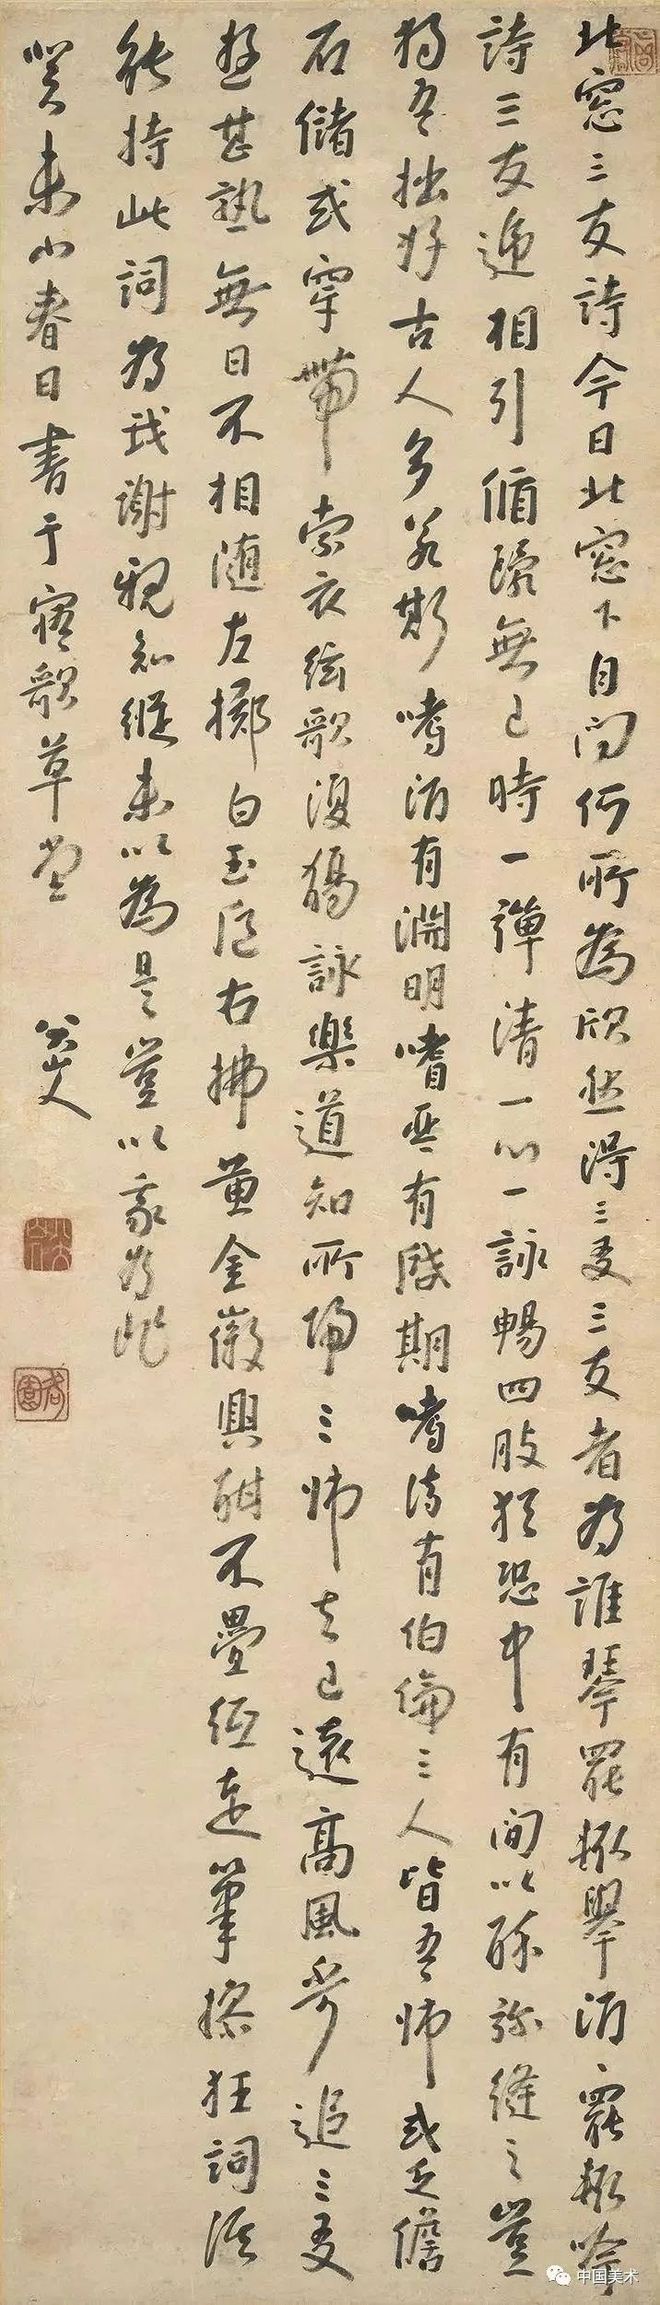 北窓三友詩今日北窓下自问何所為欣然得三友三友者為誰琴罷輒舉酒酒罷輒吟
詩三友遞相引循環無已時一彈清一心一詠暢四肢猶恐中有间以酔弥縫之豈
獨吾拙好古人多若斯嗜酒有淵明嗜琴有啟期嗜詩有伯倫三人皆吾师或乏儋
石儲或穿帶索衣絃歌復觴詠樂道知所歸三师去已遠高風追三友
游甚熟無日不相随左擲白玉卮右拂黄金徽興酣不疊紙走筆操狂詞誰
能持此詞為我謝親知縱未以為是豈以我為非
癸未小春日書于寤歌草堂
八大山人
中国美术